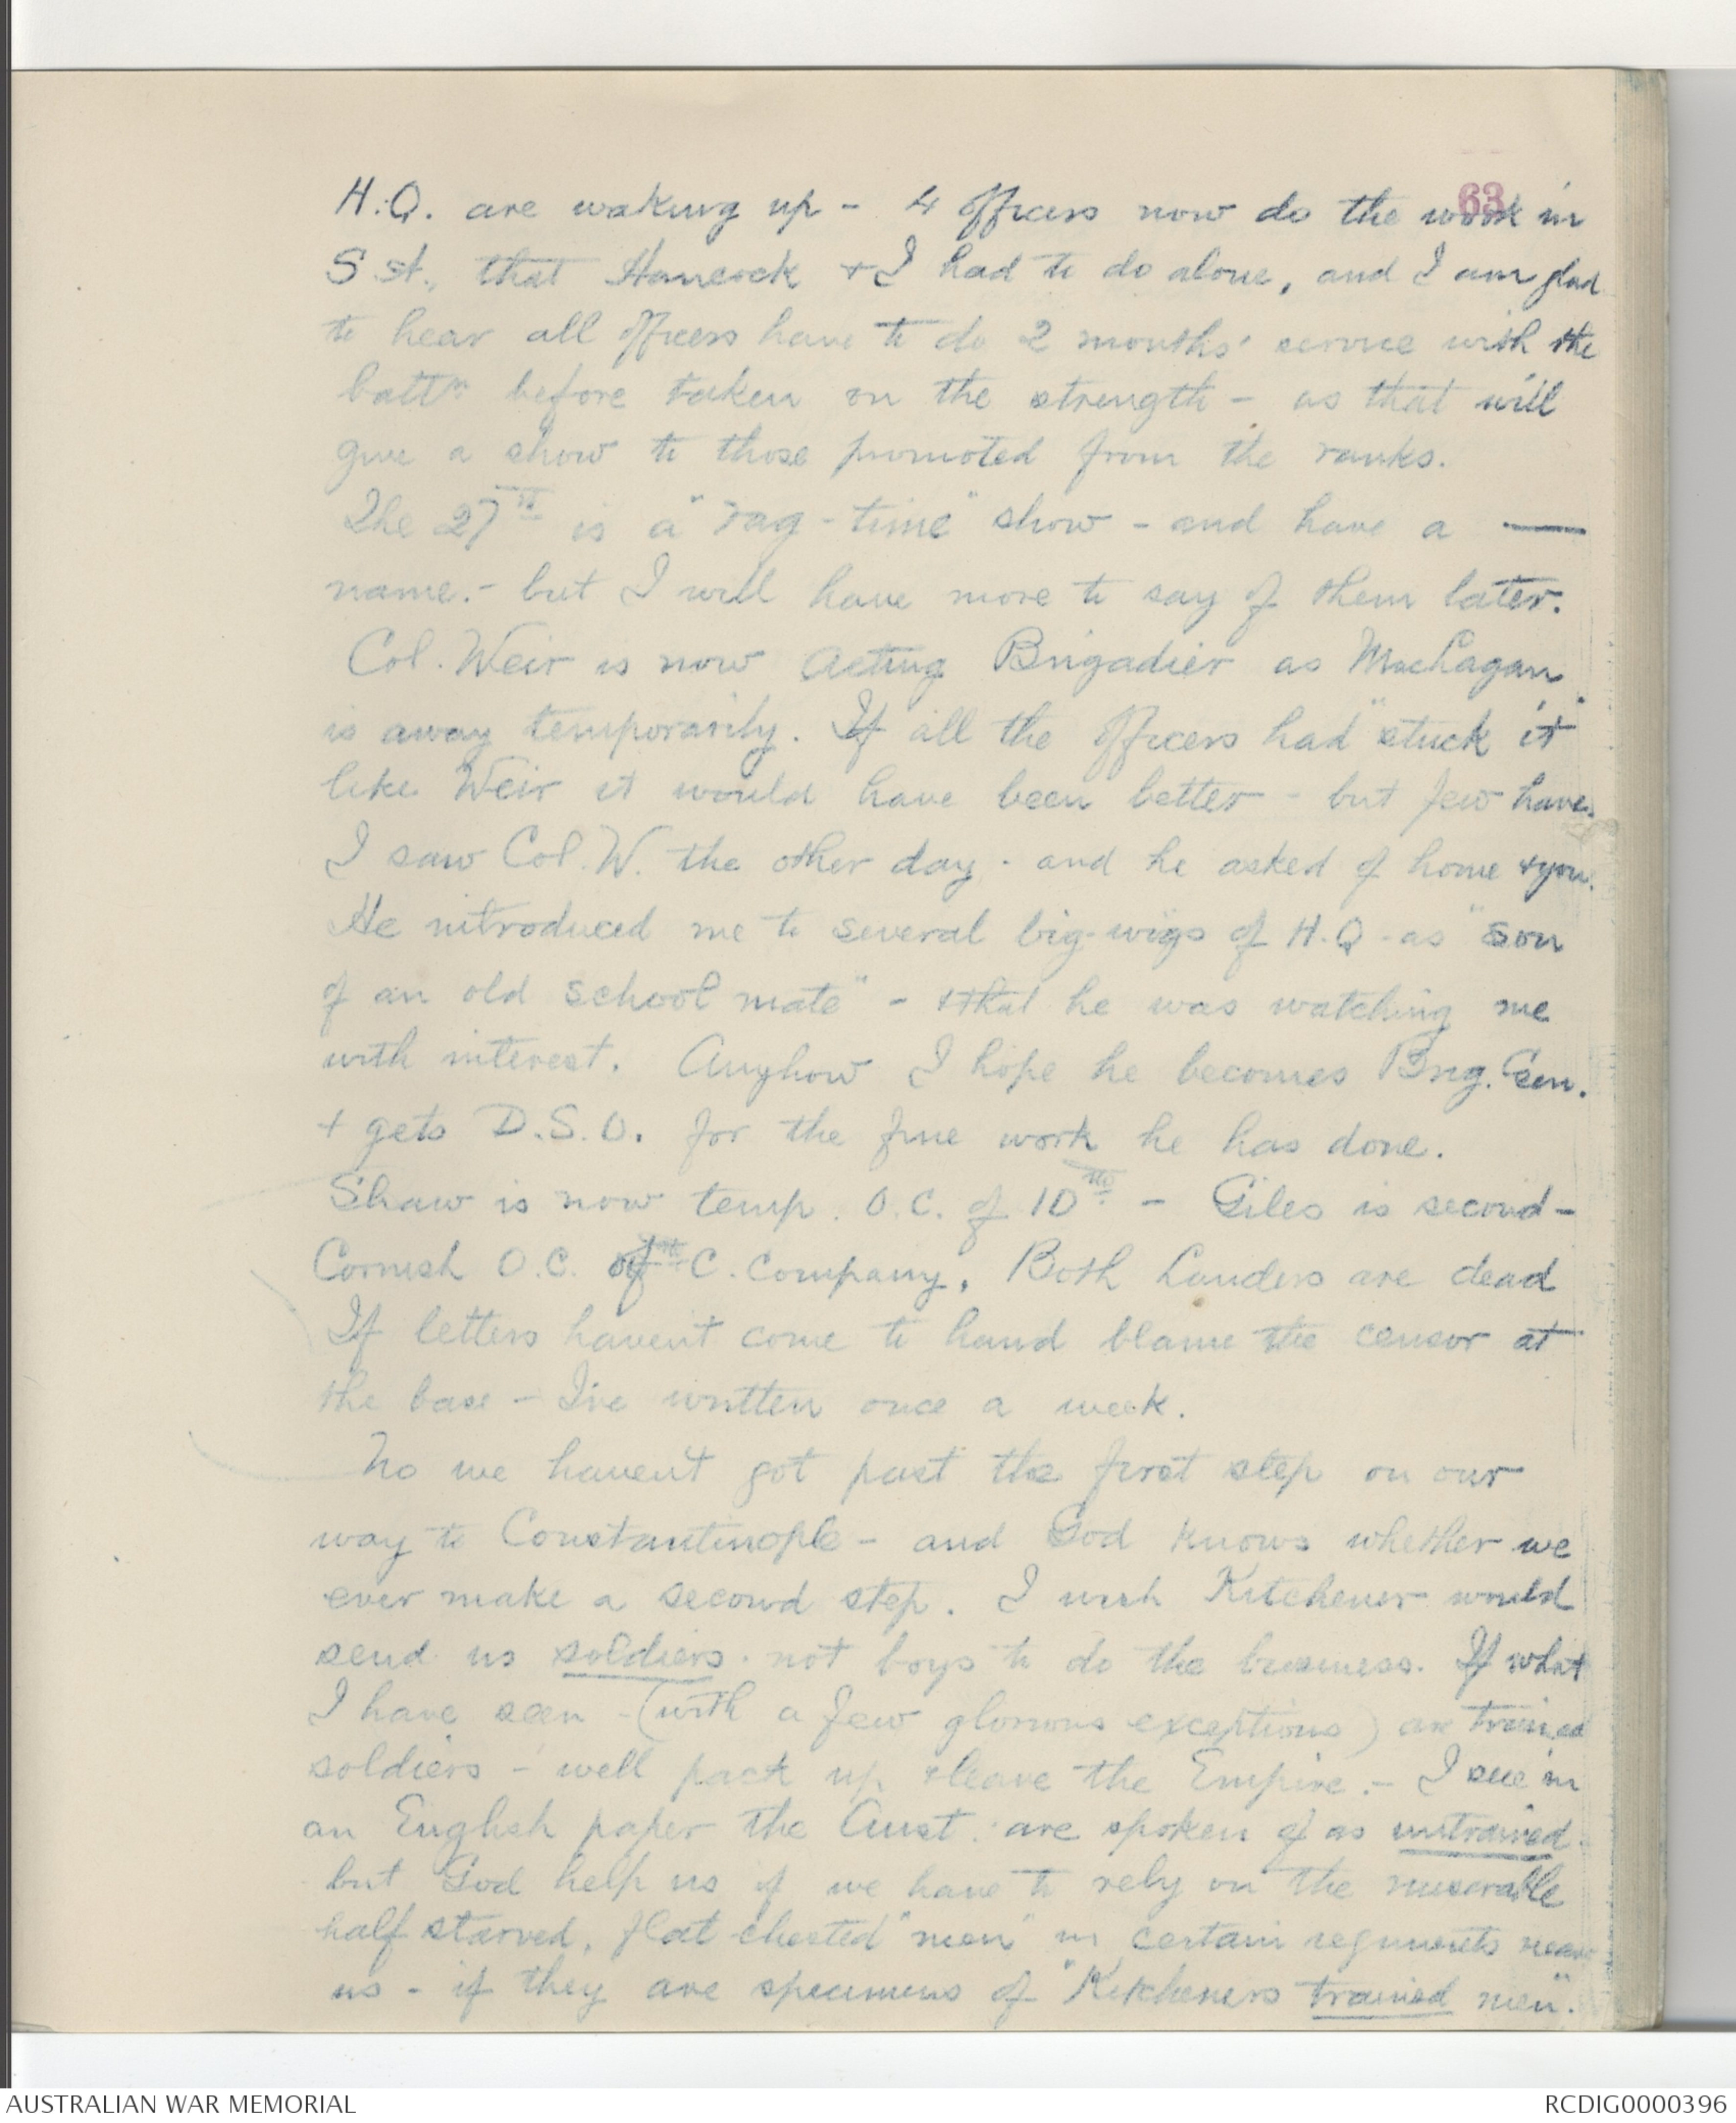 63
H.Q. are waking up - 4 Officers now do the work in
S st., that Hancock + I had to do alone, and I am glad
to hear all Officers have to do 2 months' service with the
battn before taken on the strength - as that will
give a show to those promoted from the ranks.
The 27th is a "rag-time" show - and have a ——
name. - but I will have more to say of them later.
Col. Weir is now Acting Brigadier as MacLagan
is away temporarily. If all the Officers had "stuck it"
like Weir it would have been better - but few have.
I saw Col. W. the other day - and he asked of home + you.
He introduced me to several big-wigs of H.Q - as "son
of an old school mate" - + that he was watching me
with interest. Anyhow I hope he becomes Brig. Gen.
+ gets D.S.O. for the fine work he has done.
Shaw is now temp. O.C. of 10th - Giles is second -
Cornish O.C. of C. Company. Both Landers are dead
If letters haven't come to hand blame the censor at
the base - I've written once a week.
No we haven't got past the first step on our
way to Constantinople - and God knows whether we
ever make a second step. I wish Kitchener would
send us soldiers. not boys to do the business. If what
I have seen - (with a few glorious exceptions) are trained
soldiers - well pack up + leave the Empire. - I see in
an English paper the Aust. are spoken of as untrained -
but God help us if we have to rely on the miserable
half starved, flat chested "men" in certain regiments near
us - if they are specimens of "Kitcheners trained men".
AUSTRALIAN WAR MEMORIAL
RCDIG0000396